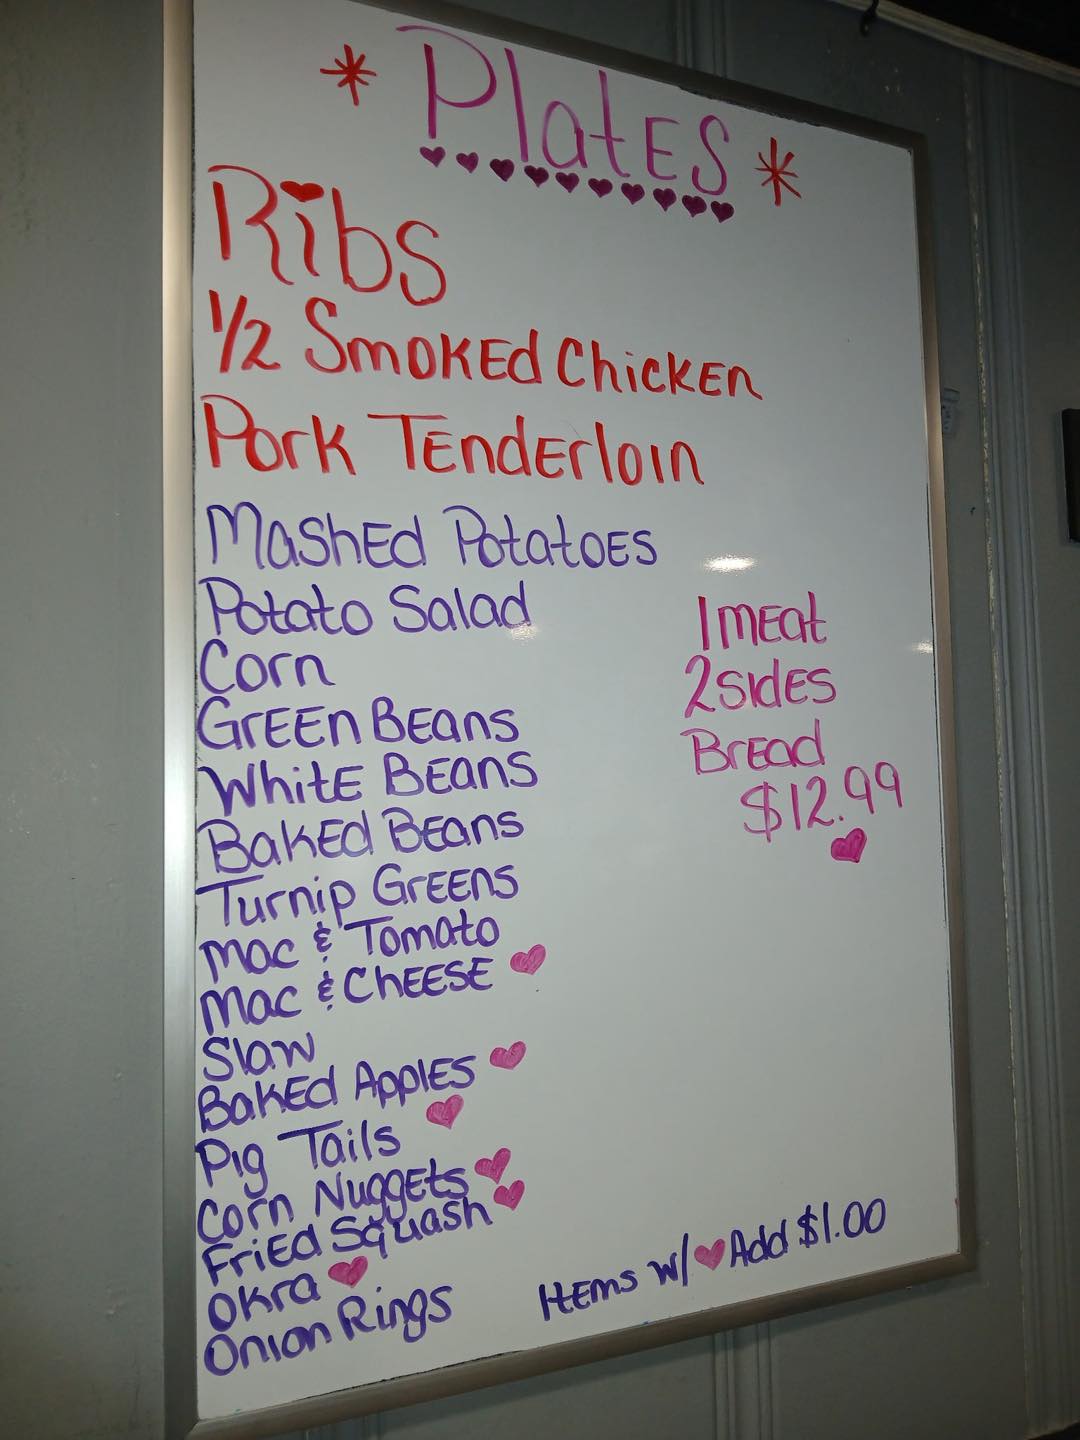 * Plates *
Ribs
1/2 Smoked Chicken
Pork Tenderloin
Mashed Potatoes
Potato Salad
Corn
Green Beans
White Beans
Baked Beans
Turnip Greens
Mac & Tomato
Mac & Cheese ♥
Slaw
Baked Apples ♥
Pig Tails ♥
Corn Nuggets ♥
Fried Squash ♥
Okra ♥
Onion Rings
1 Meat
2 Sides
Bread
$12.99
♥
Items w/ ♥ Add $1.00